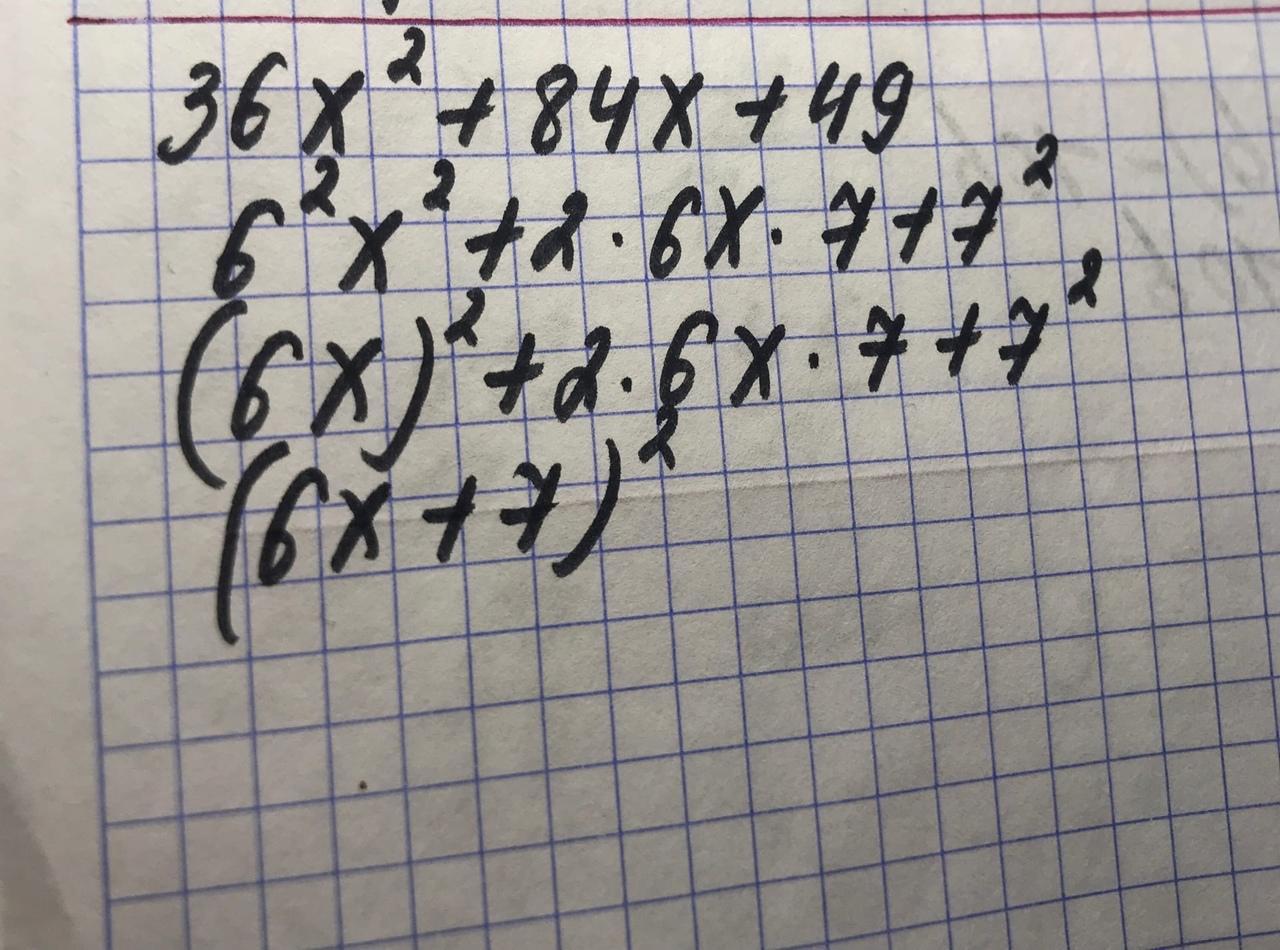 36x² + 84x + 49
6²x² + 2 · 6x · 7 + 7²
(6x)² + 2 · 6x · 7 + 7²
(6x + 7)²